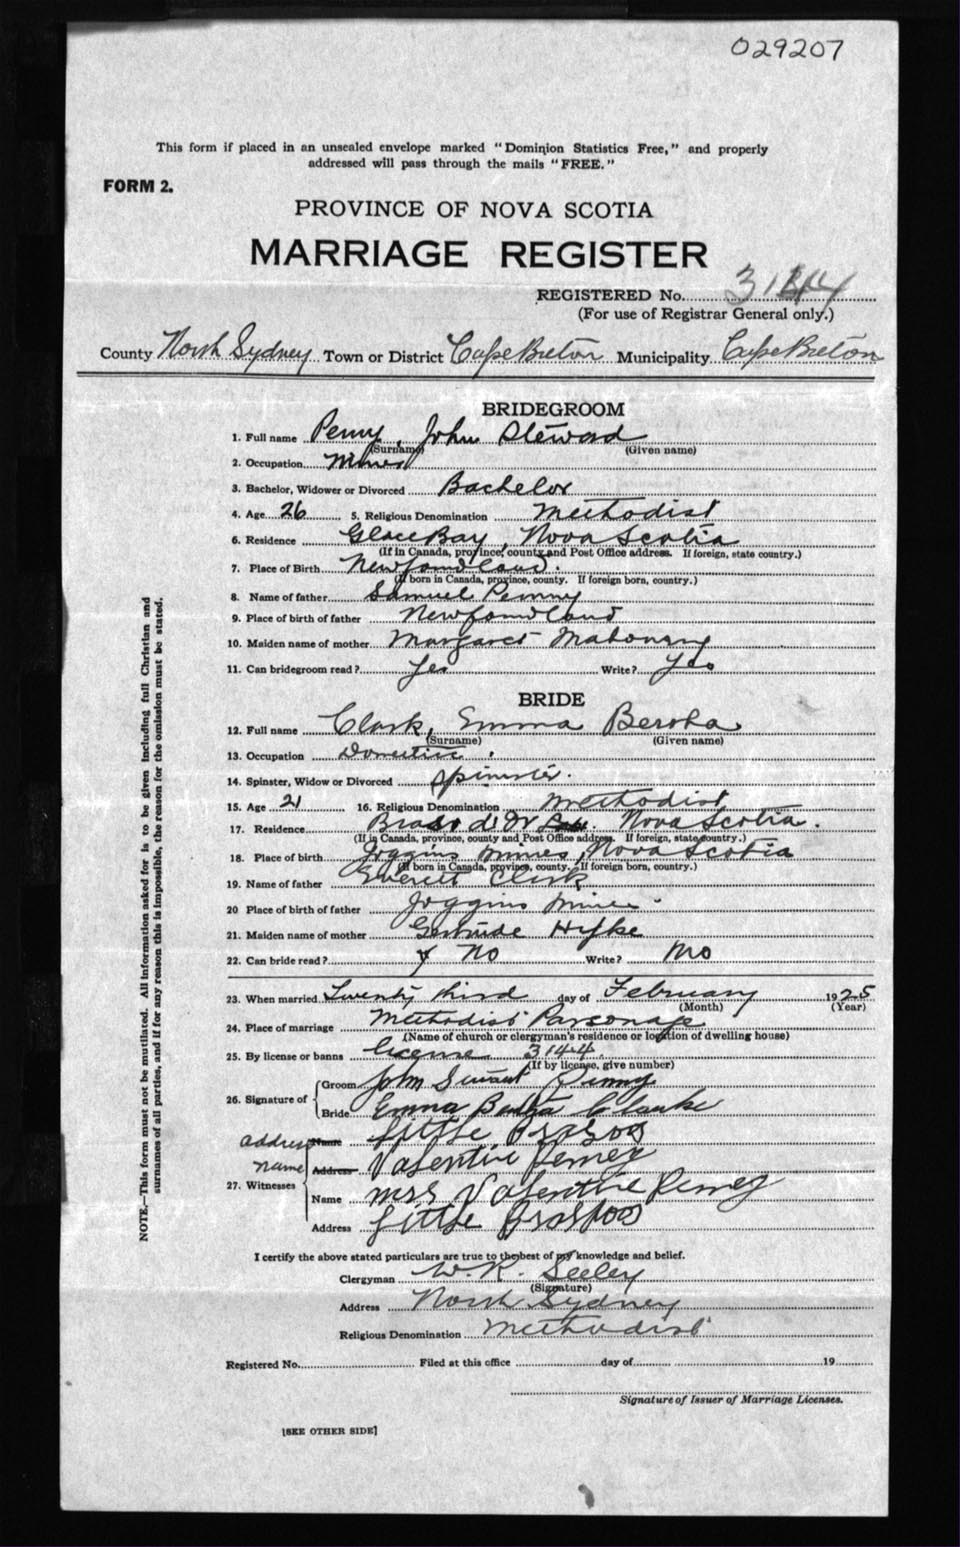 029207
This form if placed in an unsealed envelope marked "Dominion Statistics Free," and properly
addressed will pass through the mails "FREE."
FORM 2.
PROVINCE OF NOVA SCOTIA
MARRIAGE REGISTER
REGISTERED No. 3144
(For use of Registrar General only.)
County North Sydney Town or District Cape Breton Municipality Cape Breton
BRIDEGROOM
1. Full name Penny, John Steward
(Surname) (Given name)
2. Occupation Miner
3. Bachelor, Widower or Divorced Bachelor
4. Age 26 5. Religious Denomination Methodist
6. Residence Glace Bay, Nova Scotia
(If in Canada, province, county and Post Office address. If foreign, state country.)
7. Place of Birth Newfoundland.
(If born in Canada, province, county. If foreign born, country.)
8. Name of father Samuel Penny
9. Place of birth of father Newfoundland
10. Maiden name of mother Margaret Mahoney
11. Can bridegroom read? Yes Write? Yes
BRIDE
12. Full name Clark, Emma Bertha
(Surname) (Given name)
13. Occupation Domestic.
14. Spinster, Widow or Divorced Spinster.
15. Age 21 16. Religious Denomination Methodist
17. Residence Bras d'Or Nova Scotia.
(If in Canada, province, county and Post Office address. If foreign, state country.)
18. Place of birth Joggins Mines, Nova Scotia
(If born in Canada, province, county. If foreign born, country.)
19. Name of father Everett Clark
20 Place of birth of father Joggins Mines
21. Maiden name of mother Gertrude
22. Can bride read? No Write? No
23. When married Twenty third day of February 1925
(Month) (Year)
24. Place of marriage Methodist Parsonage
(Name of church or clergyman's residence or location of dwelling house)
25. By license or banns License 3144
(If by license, give number)
26. Signature of
Groom John Stewart Penny
Bride Emma Bertha Clarke
address Name Little Brasdor
name Address Valentine Penney
27. Witnesses
Name Mrs Valentine Penney
Address Little Brasdor
I certify the above stated particulars are true to the best of my knowledge and belief.
Clergyman W. R. Seeley
(Signature)
Address North Sydney
Religious Denomination Methodist
Registered No. Filed at this office day of 19
Signature of Issuer of Marriage Licenses.
[SEE OTHER SIDE]
NOTE.—This form must not be mutilated. All information asked for is to be given including full Christian and
surnames of all parties, and if for any reason this is impossible, the reason for the omission must be stated.